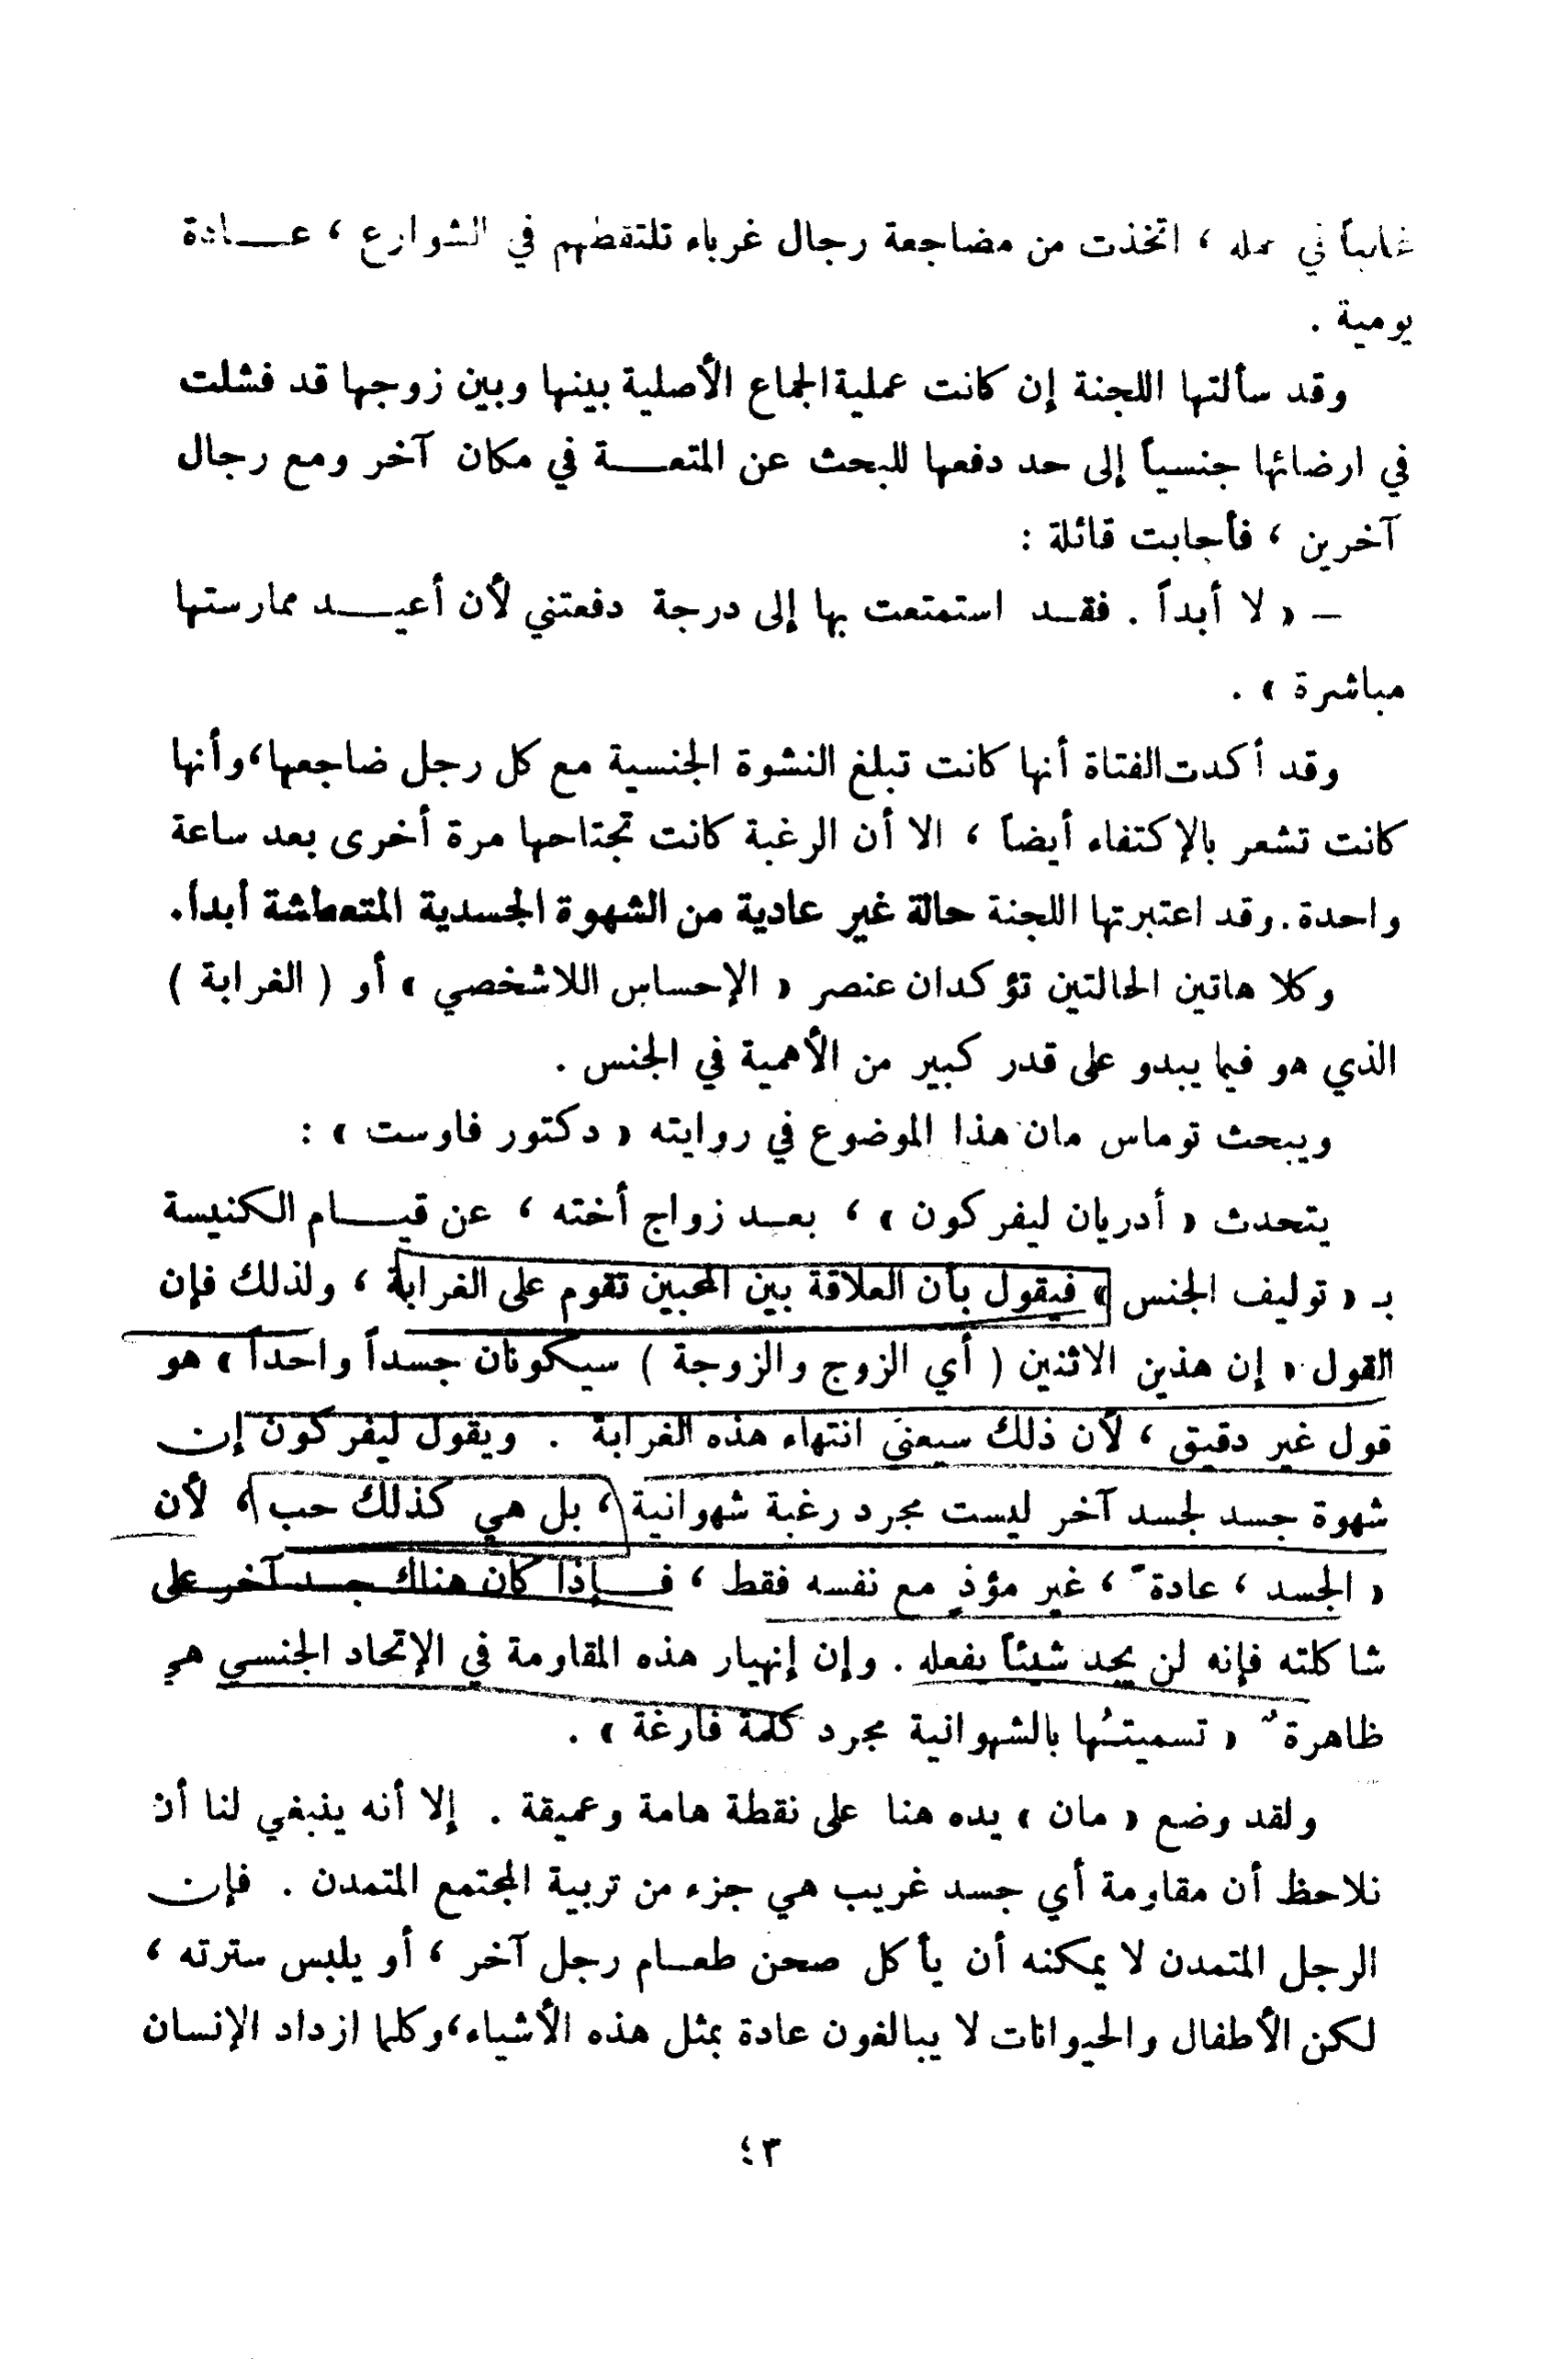 غائباً في عمله ، اتخذت من مضاجعة رجال غرباء تلتقطهم في الشوارع ، عـــادة
يومية .
وقد سألتها اللجنة إن كانت عملية الجماع الأصلية بينها وبين زوجها قد فشلت
في ارضائها جنسياً إلى حد دفعها للبحث عن المتعـــة في مكان آخر ومع رجال
آخرين ، فأجابت قائلة :
– « لا أبداً . فقـد استمتعت بها إلى درجة دفعتني لأن أعيـــد ممارستها
مباشرة » .
وقد أكدت الفتاة أنها كانت تبلغ النشوة الجنسية مع كل رجل ضاجعها ، وأنها
كانت تشعر بالإكتفاء أيضاً ، الا أن الرغبة كانت تجتاحها مرة أخرى بعد ساعة
واحدة . وقد اعتبرتها اللجنة حالة غير عادية من الشهوة الجسدية المتعطشة أبداً .
وكلا هاتين الحالتين تؤكدان عنصر « الإحساس اللاشخصي » أو ( الغرابة )
الذي هو فيما يبدو على قدر كبير من الأهمية في الجنس .
ويبحث توماس مان هذا الموضوع في روايته « دكتور فاوست » :
يتحدث « أدريان ليفركون » ، بعـد زواج أخته ، عن قيـــام الكنيسة
بـ « توليف الجنس » فيقول بأن العلاقة بين المحبين تقوم على الغرابة ، ولذلك فإن
القول « إن هذين الاثنين ( أي الزوج والزوجة ) سيكونان جسداً واحداً » هو
قول غير دقيق ، لأن ذلك سيعني انتهاء هذه الغرابة . ويقول ليفركون إن
شهوة جسد لجسد آخر ليست مجرد رغبة شهوانية ، بل هي كذلك حب ، لأن
« الجسد ، عادةً ، غير مؤذٍ مع نفسه فقط ، فـــإذا كان هناك جسد آخر على
شاكلته فإنه لن يجد شيئاً يفعله . وإن إنهيار هذه المقاومة في الإتحاد الجنسي هي
ظاهرةٌ « تسميتُها بالشهوانية مجرد كلمة فارغة » .
ولقد وضع « مان » يده هنا على نقطة هامة وعميقة . إلا أنه ينبغي لنا أن
نلاحظ أن مقاومة أي جسد غريب هي جزء من تربية المجتمع المتمدن . فإن
الرجل المتمدن لا يمكنه أن يأكل صحن طعـام رجل آخر ، أو يلبس سترته ،
لكن الأطفال والحيوانات لا يبالغون عادة بمثل هذه الأشياء ، وكلما ازداد الإنسان
٤٣